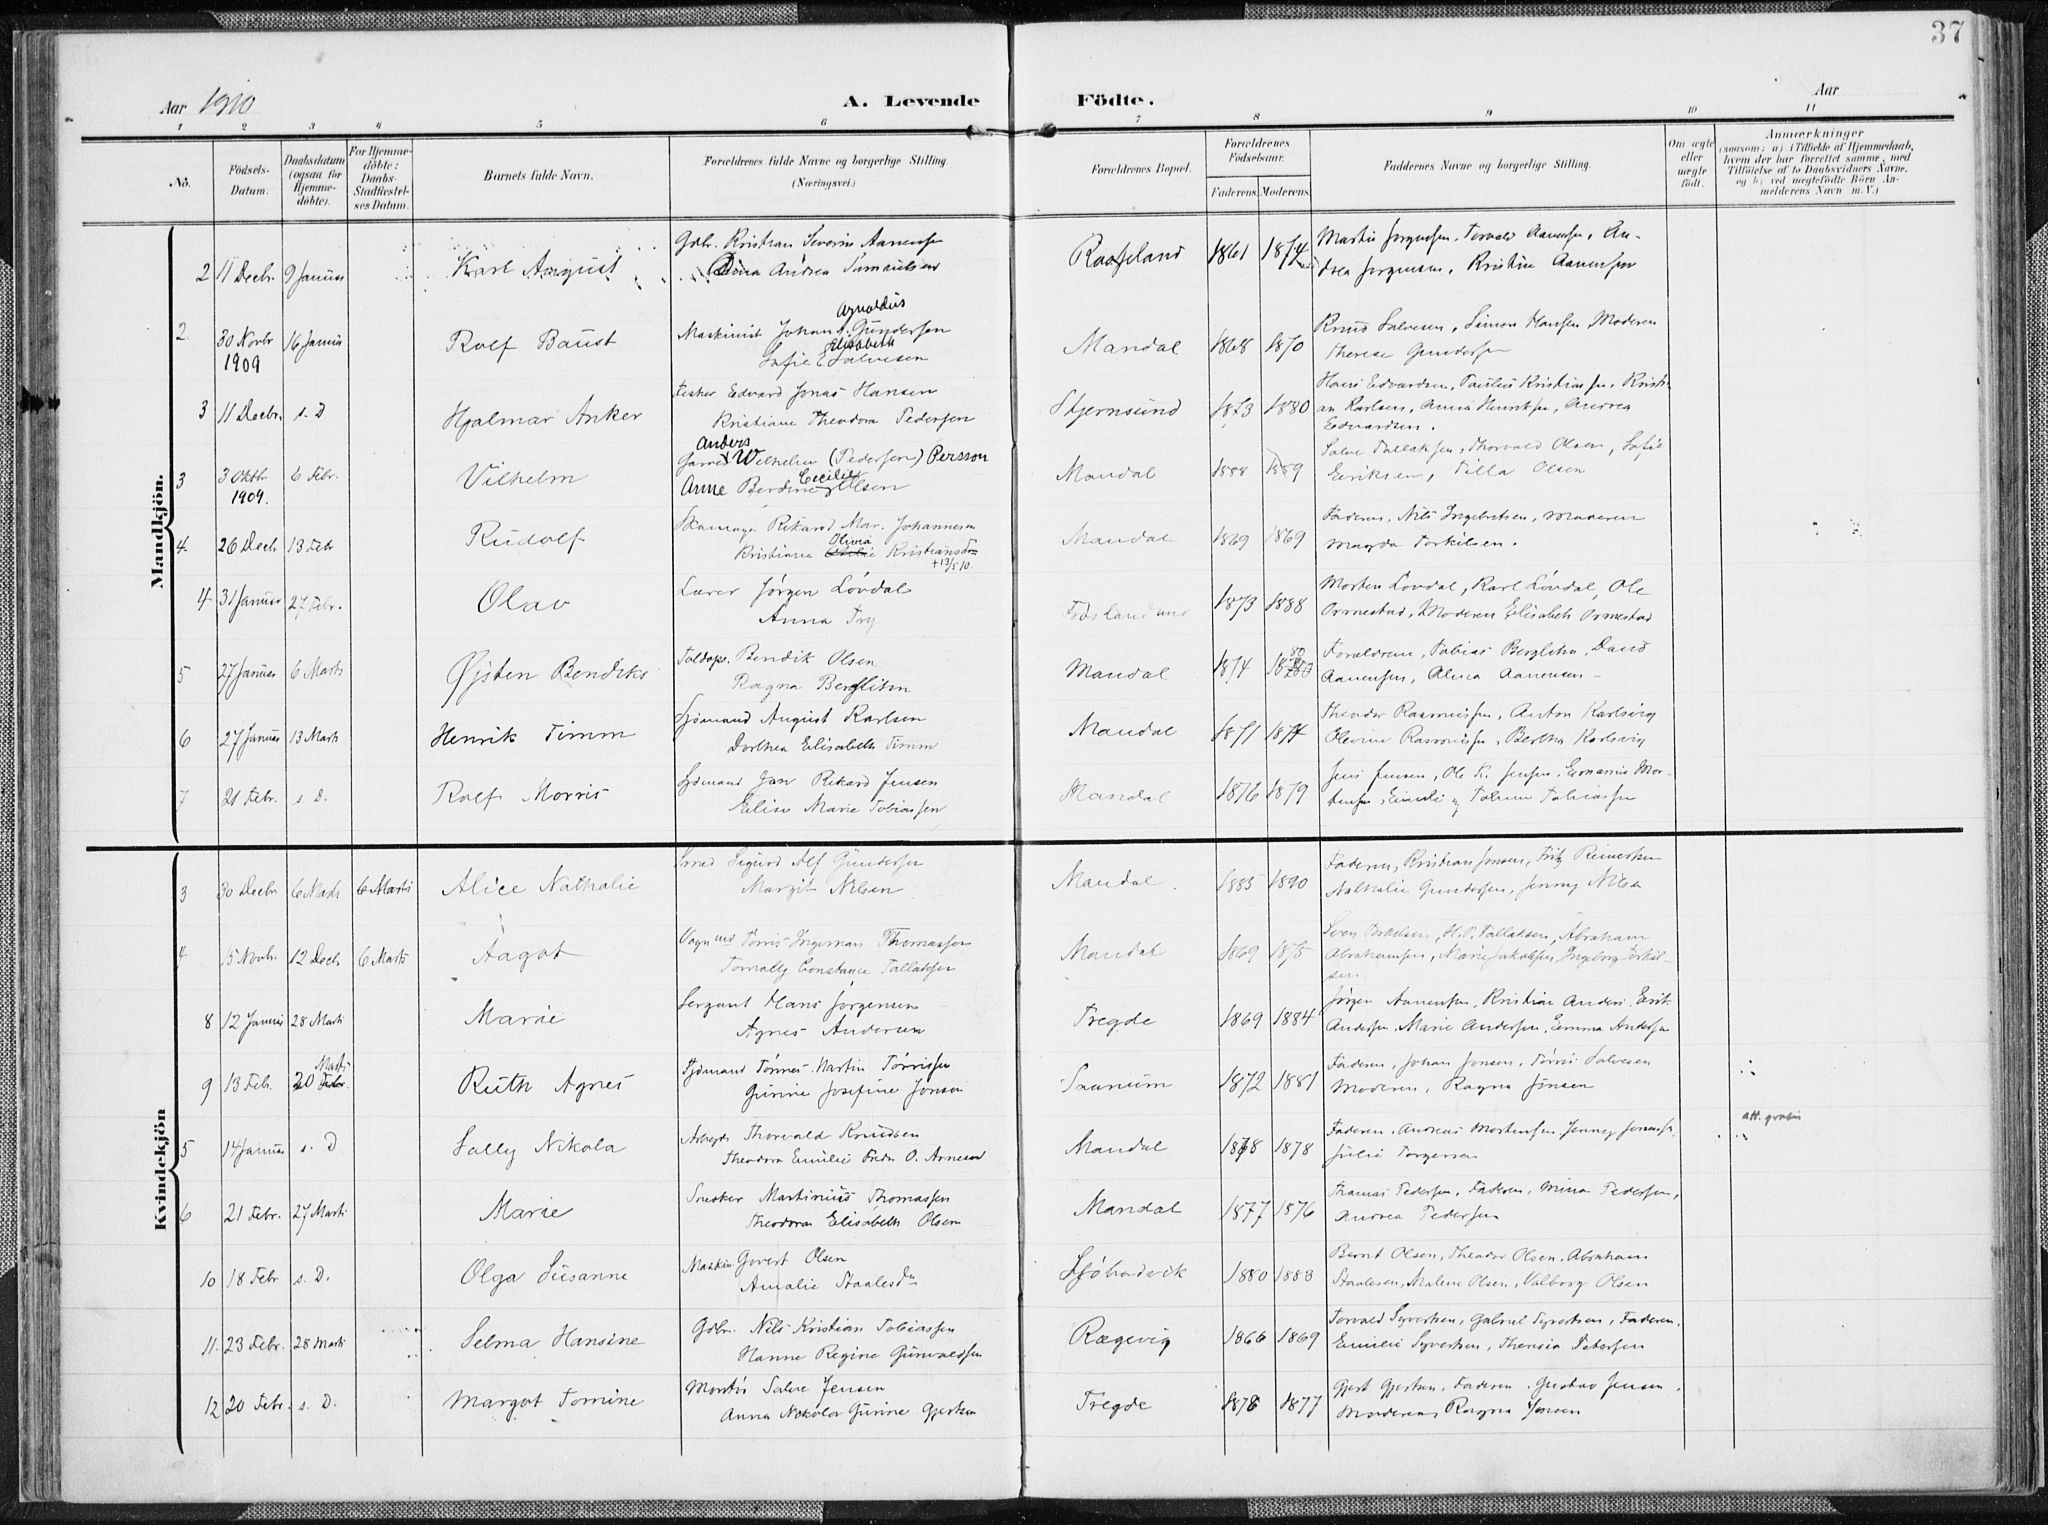 37
Aar 1910
A. Levende Födte.
Aar
1 2 3 4 5 6 7 8 9 10 11
No.
Födsels-Datum.
Daabsdatum (ogsaa for Hjemme-döbte).
For Hjemme-döbte: Daabs-Stadfæstel-ses Datum.
Barnets fulde Navn.
Forældrenes fulde Navne og borgerlige Stilling. (Næringsvei.)
Forældrenes Bopæl.
Forældrenes Födselsaar.
Faderens. Moderens.
Faddernes Navne og borgerlige Stilling.
Om ægte eller uægte födt.
Anmærkninger
(saasom: a) i Tilfælde af Hjemmedaab, hvem der har forrettet samme, med Tilföielse af to Daabsvidners Navne, og b) ved uægtefödte Börn Anmelderens Navn m. V.)
Mandkjön.
2 11 Decbr. 9 Januar Karl August Gdbr. Kristian Severin Aanensen
Dina Andrea Samuelsen Raafeland 1861 1874 Martin Jorgensen, Torvald Aanensen, Andrea Jorgensen, Kristine Aanensen
2 30 Novbr 1909 16 Januar Rolf Baust Maskinist Johan A. Gundersen Arnoldus
Sofie E Salvesen Elisabeth Mandal 1868 1870 Knud Salvesen, Simon Hansen Moderen
Therese Gundersen
3 11 Decbr. s. D Hjalmar Anker Fisker Edvard Jonas Hansen
Kristiane Theodora Pedersen Stjernsund 1873 1880 Hans Edvardsen, Paulus Kristiansen, Kristian Karlsen, Anna Henriksen, Andrea Edvardsen.
3 3 Oktbr 1909. 6 Febr. Vilhelm Anders Wilhelm (Pedersen) Persson
Anne Berdine Cecilie Olsen Mandal 1888 1889 Salve Tallaksen, Thorvald Olsen, Sofie
Eriksen, Tilla Olsen
4 26 Decbr 13 Febr Rudolf Skomager Rikard Mar. Johannesen
Kristiana Olivia Kristiansdr
+13/5 10. Mandal 1869 1869 Faderen, Nils Ingebretsen, Moderen
Magda Torkilsen.
4 31 Januar 27 Febr. Olav Lærer Jørgen Løvdal
Anna Try 1873 1888 Morten Løvdal, Karl Løvdal, Ole
Ormestad, Moderen Elisabeth Ormestad
5 27 Januar 6 Marts Øjsten Bendiks Toldops. Bendik Olsen
Ragna Berglihn Mandal 1874 1880 Forældrene, Tobias Berglihn, David
Aanensen, Alma Aanensen
6 27 Januar 13 Marts Henrik Timm Sjømand August Karlsen
Dorthea Elisabeth Timm Mandal 1871 1877 Theodor Rasmussen, Anton Karlsvig
Olevine Rasmussen, Bertha Karlsvig
7 21 Febr. s. D. Rolf Morris Sjømand Jan Rikard Jensen
Elise Marie Tobiassen Mandal 1876 1879 Jens Jensen, Ole K. Jensen, Emanius Mortensen, Emilie og Tobine Tobiassen
Kvindekjön
3 30 Decbr 6 Marts 6 Marts Alice Nathalie Smed Sigurd Alf Gundersen
Margit Nilsen Mandal. 1885 1890 Faderen, Kristian Jensen, Fritz Reinertsen
Nathalie Gundersen, Jenny Nilsen
4 15 Novbr. 12 Decb. 6 Marts Aagot Vognmd Tørris Ingeman Thomassen
Tomally Constance Tallaksen Mandal 1869 1875 Sven Torkelsen, H.P. Tallaksen, Abraham
Abrahamsen, Marie Jakobsen, Ingeborg Torkilsen
8 12 Januar 28 Marts Marie Sergeant Hans Jørgensen
Agnes Andersen Tregde 1869 1884 Jørgen Aanensen, Kristian Anders. Erik
Andersen, Marie Andersen, Emma Andersen
9 13 Febr. 20 Marts Ruth Agnes Sjømand Tønnes Martin Tørrissen
Gurine Josefine Jonsen Saanum 1872 1881 Faderen, Johan Jonsen, Tørris Salvesen
Moderen, Ragna Jensen
5 14 Januar s. D Sally Nikola Arbeyd. Thorvald Knudsen
Theodora Emilie Fredr. O. Arnesen Mandal 1878 1878 Faderen, Andreas Mortensen Jenny Jonassen.
Julie Torgersen att. gratis
6 21 Febr. 27 Marts Marie Snekker Martinius Thomassen
Theodora Elisabeth Olsen Mandal 1877 1876 Thomas Pedersen, Faderen, Mina Pedersen,
Andrea Pedersen
10 18 Febr s. D. Olga Susanne Maskin Govert Olsen
Amalie Staalesdr Sjøbodvik 1880 1883 Bernt Olsen, Theodor Olsen, Abraham
Staalesen, Malene Olsen, Valborg Olsen
11. 23 Febr. 28 Marts Selma Hansine Gdbr. Nils Kristian Tobiassen
Hanne Regine Gunvaldsen Rægevig 1866 1869 Torvald Syvertsen, Gabriel Syvertsen, Faderen.
Emilie Syvertsen, Theresia Petersen
12 20 Febr. s. D. Margot Tomine Montør Salve Jensen
Anna Nekolea Gurine Gjertsen Tregde 1878 1877 Gjert Gjertsen, Faderen, Gustav Jensen.
Moderen, Ragna Jensen